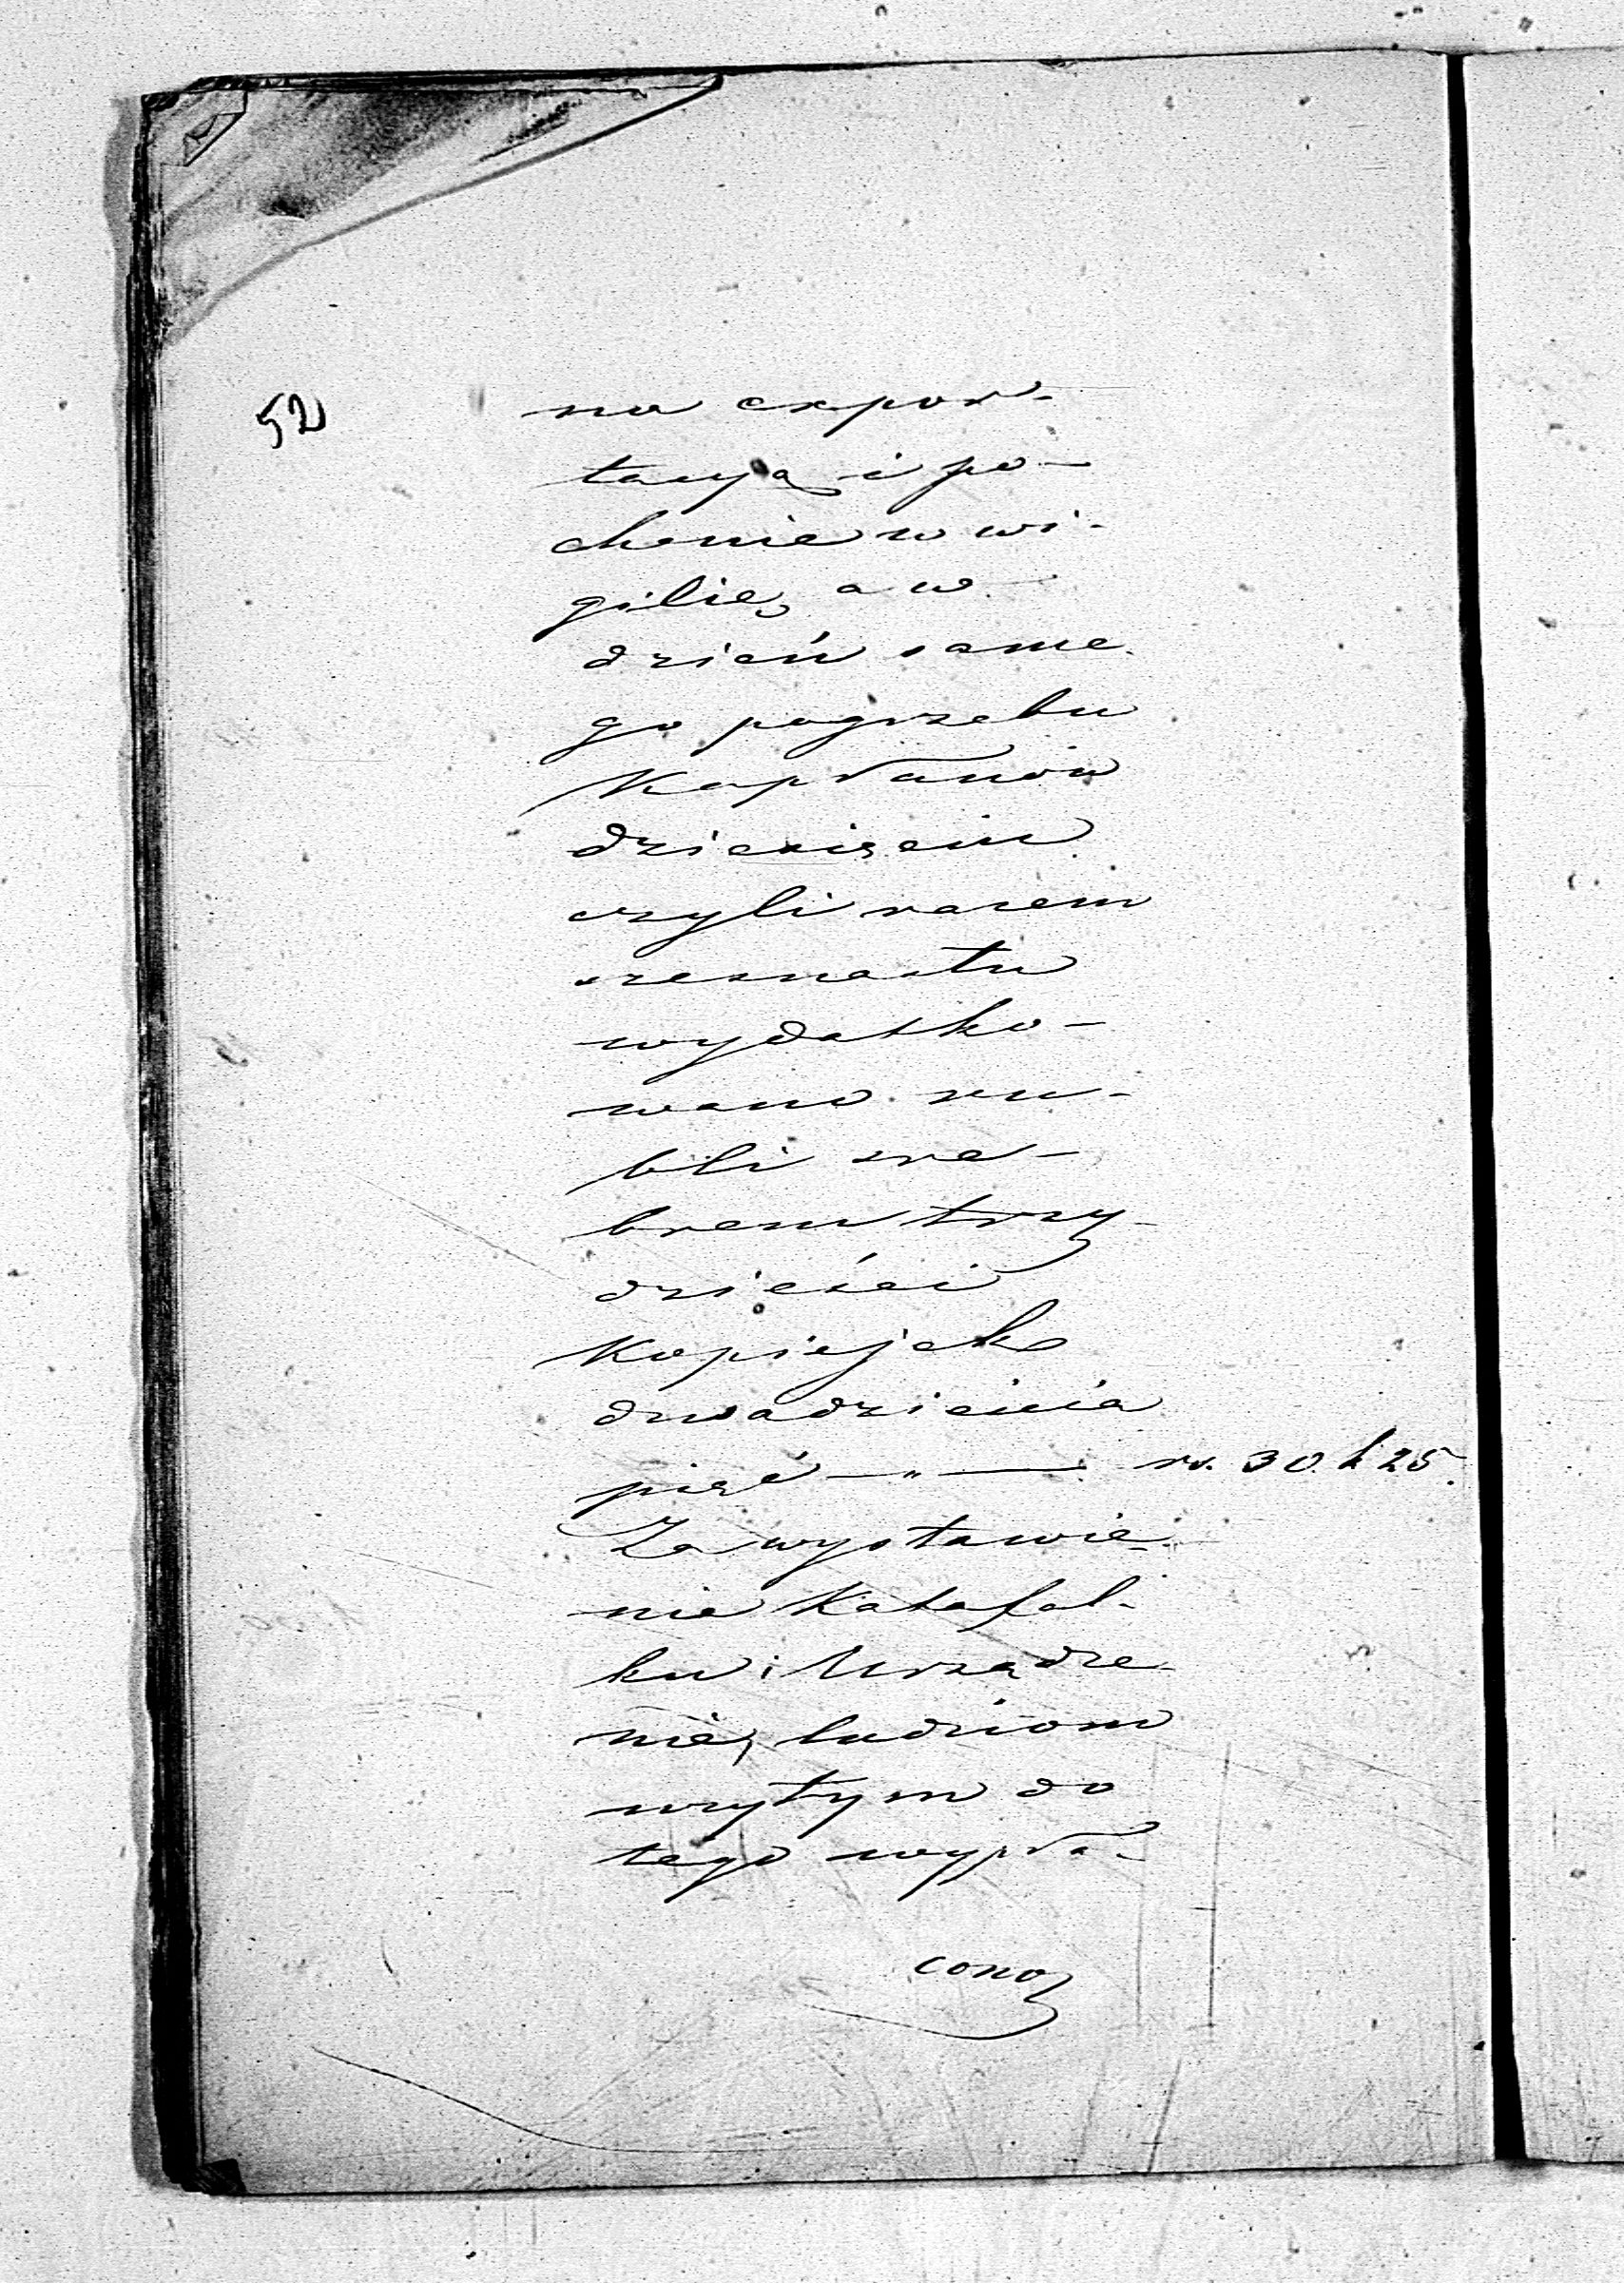 52
na expor-
tacyą i po-
chenie w wi-
gilię, a w
dzień same
go pogrzebu
Kapłanów
dziesięciu
czyli razem
szesnastu
wydatko-
wano ru-
bli sre-
brem trzy-
dzieści
Kopiejek
dwadzieścia
pięć — „ — rs. 30. k 25.
Za wystawie
nie Katafal-
ku i Urządze
nie, ludziom
wzytym do
tego wypła-
cono